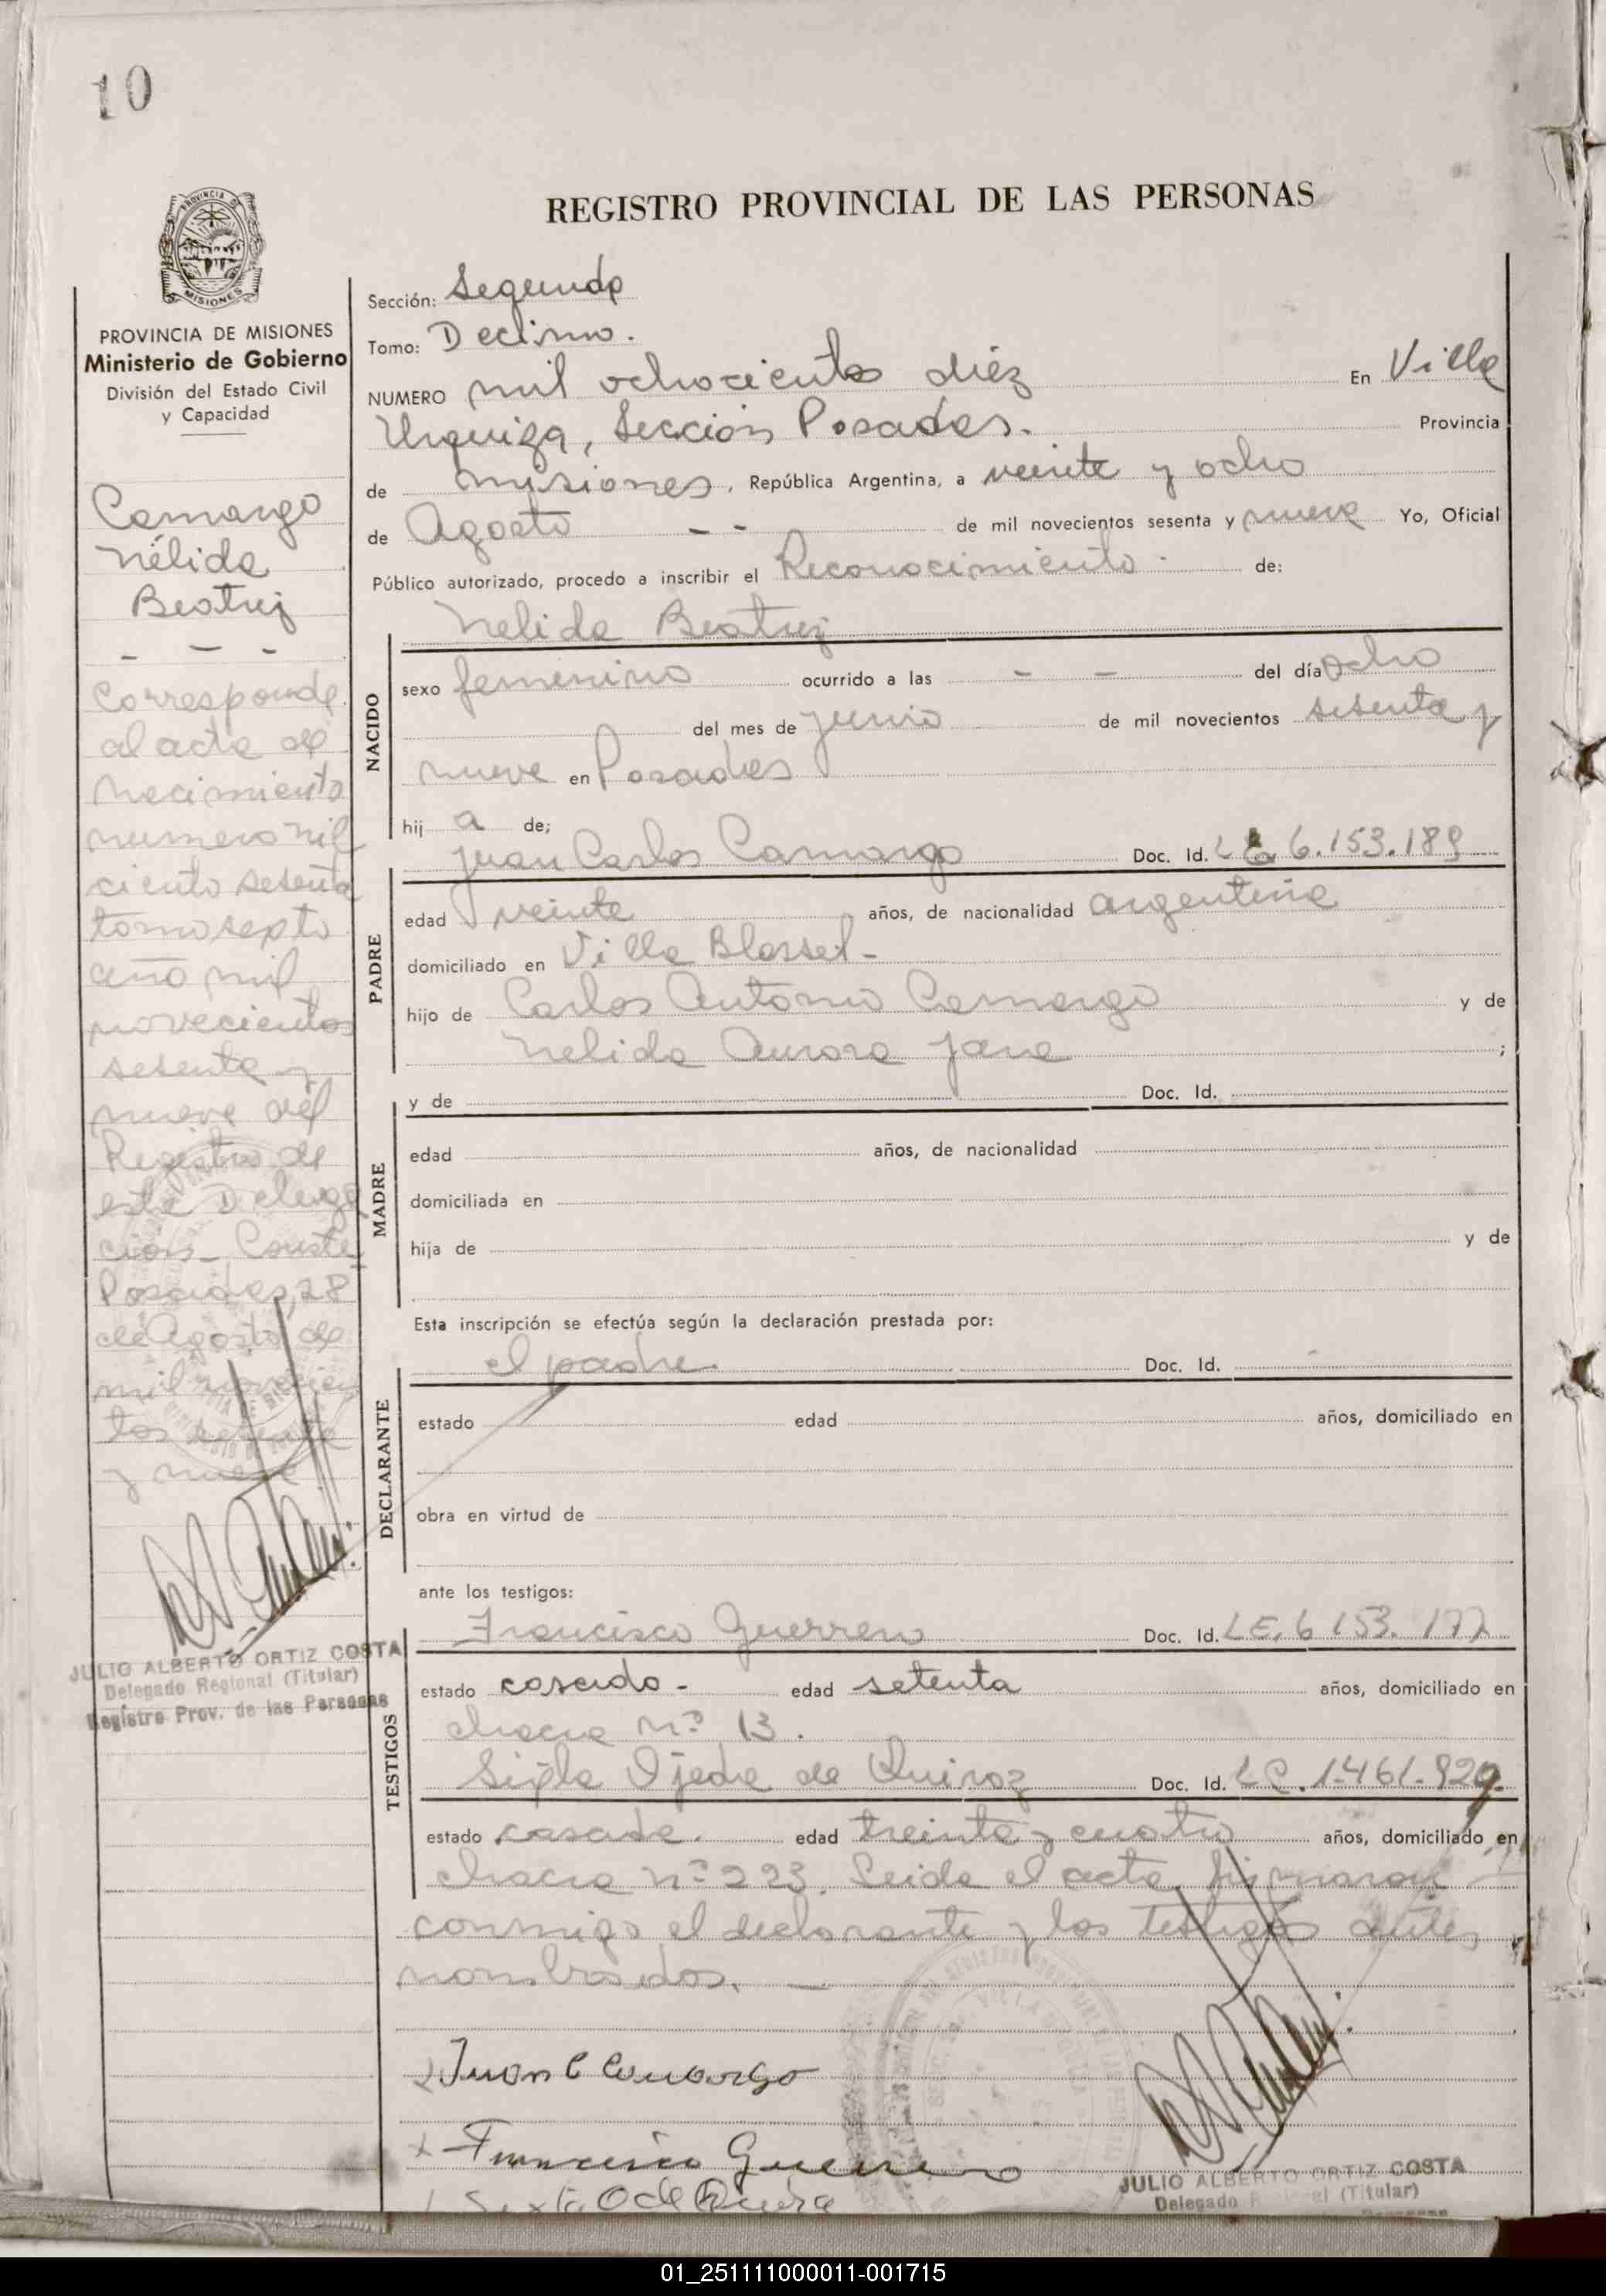 10
REGISTRO PROVINCIAL DE LAS PERSONAS
PROVINCIA DE
MISIONES
PROVINCIA DE MISIONES
Ministerio de Gobierno
División del Estado Civil
y Capacidad
Camargo
Nélida
Beatriz
- - -
Corresponde
al acta de
nacimiento
numero mil
ciento sesenta
tomo septo
año mil
novecientos
sesenta y
nueve del
Registro de
esta Delega
cion - Conste
Posadas, 28
de Agosto de
mil novecien
tos sesenta
y nueve
JULIO ALBERTO ORTIZ COSTA
Delegado Regional (Titular)
Registro Prov. de las Personas
Sección: Segunda
Tomo: Decimo.
NUMERO mil ochocientos diéz En Villa
Urquiza, Sección Posadas. Provincia
de Misiones, República Argentina, a veinte y ocho
de Agosto - - de mil novecientos sesenta y nueve Yo, Oficial
Público autorizado, procedo a inscribir el Reconocimiento - de:
Nelida Beatriz
NACIDO
sexo femenino ocurrido a las - - del día ocho
del mes de junio de mil novecientos sesenta y
nueve en Posadas
hij a de;
Juan Carlos Camargo Doc. Id. LE 6.153.189
PADRE
edad veinte años, de nacionalidad argentina
domiciliado en Villa Blosset -
hijo de Carlos Antonio Camargo y de
Nelida Aurora Jara ;
y de Doc. Id.
MADRE
edad años, de nacionalidad
domiciliada en
hija de y de
Esta inscripción se efectúa según la declaración prestada por:
el padre. Doc. Id.
DECLARANTE
estado edad años, domiciliado en
obra en virtud de
ante los testigos:
Francisco Guerrero Doc. Id. LE. 6 153. 177
TESTIGOS
estado casado - edad setenta años, domiciliado en
chacra nº 13.
Sixta Ojeda de Quiroz Doc. Id. LC. 1.461.929.
estado casada. edad treinta y cuatro años, domiciliado en
chacra nº 223. Leida el acta, firmaron
conmigo el declarante y los testigos antes
nombrados. —
Juan C Camargo
x Francisco Guerrero
Sixta O de
JULIO ALBERTO ORTIZ COSTA
Delegado Regional (Titular)
01_251111000011-001715